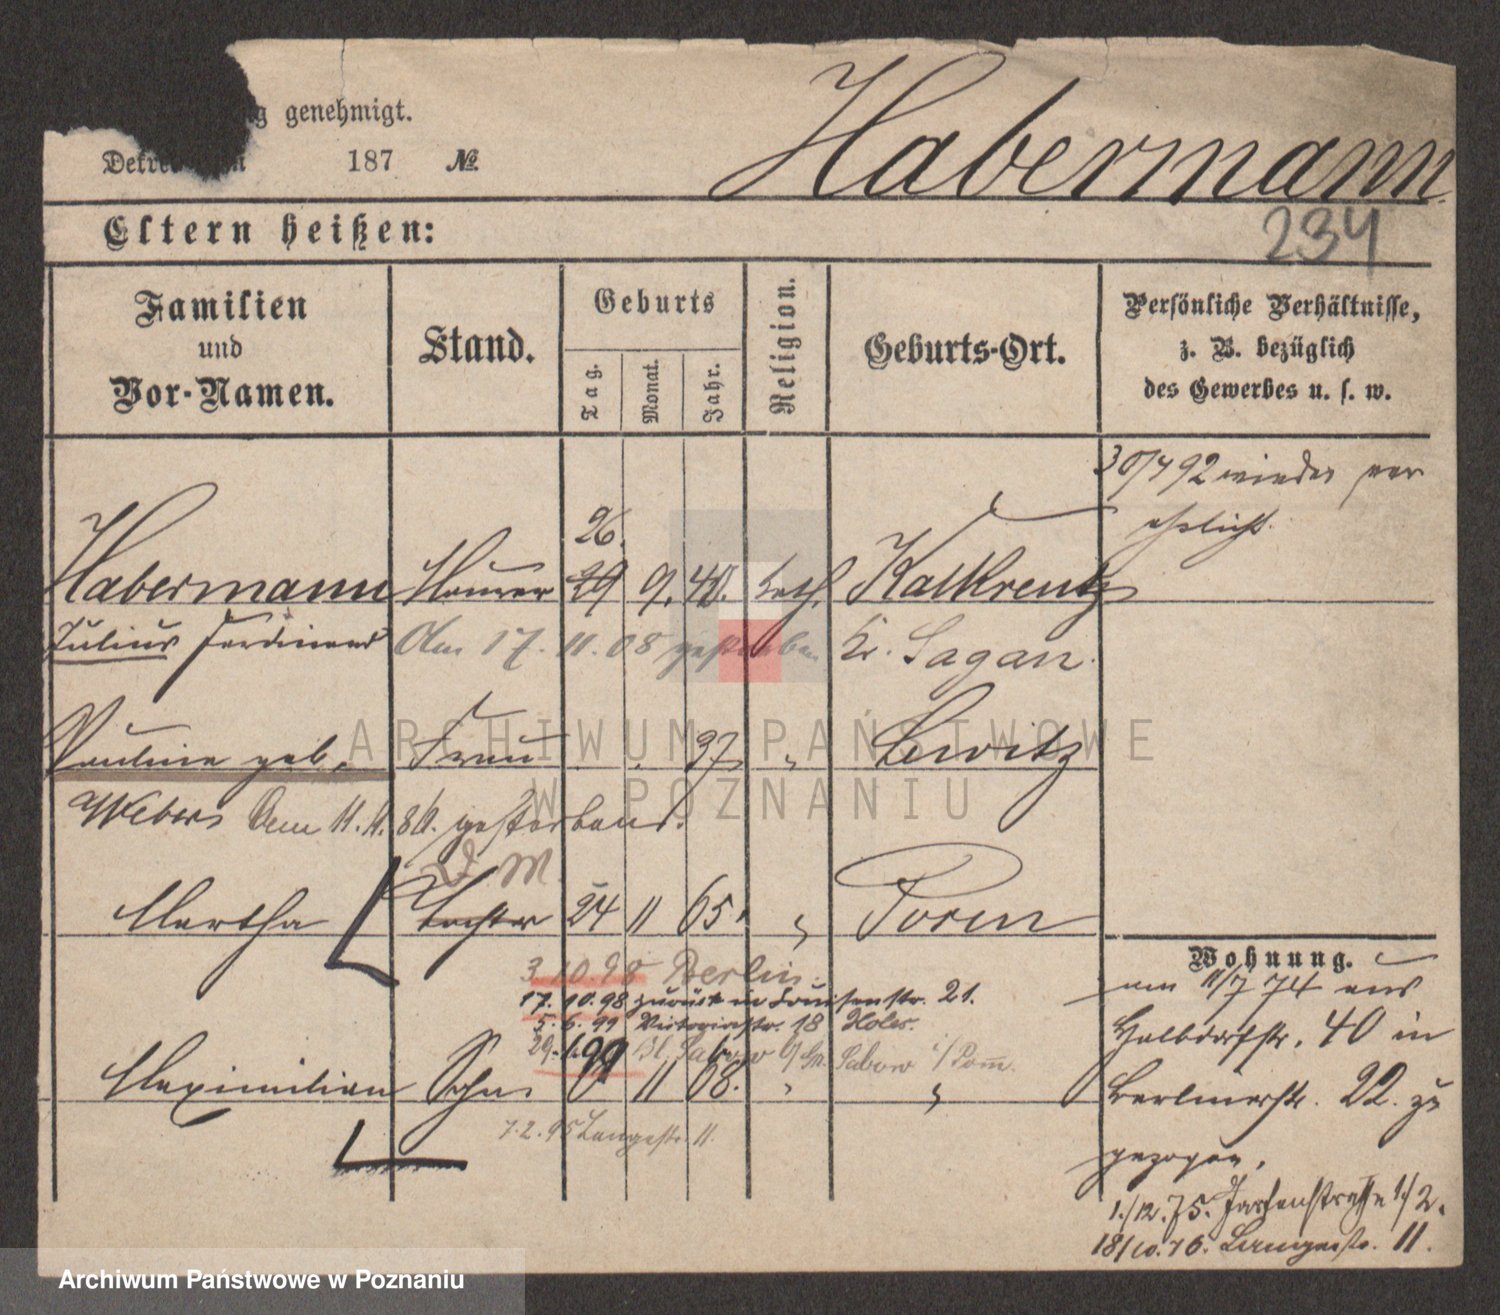 genehmigt.
187 №
Habermann
234
Eltern heißen:
Familien
und
Vor-Namen.
Stand.
Geburts
Tag.
Monat.
Jahr.
Religion.
Geburts-Ort.
Persönliche Verhältnisse,
z. B. bezüglich
des Gewerbes u. s. w.
30/4 92 wieder ver
ehelicht.
26.
Habermann Maurer 29 9. 40. kath. Kalkreuth
Julius Ferdinand Am 17. 11. 08 gestorben Kr. Sagan.
Pauline geb. Frau 37 " Lewitz
Weber Am 11. 11. 86. gestorben.
D. M.
Martha Tochter 24 11 65. " Posen
3 10 98 Berlin.
17. 10. 98 zurück Louisenstr. 21.
5. 6. 99 Victoriastr. 18
Maximilian Sohn 11 68. " "
7. 2. 95 Langestr. 11.
Wohnung.
am 11/7 74 aus
Halbdorfstr. 40 in
Berlinerstr. 22. zu
gezogen.
1./12. 75. 1/2.
18/10. 76. Langestr. 11.
ARCHIWUM PAŃSTWOWE
W POZNANIU
Archiwum Państwowe w Poznaniu